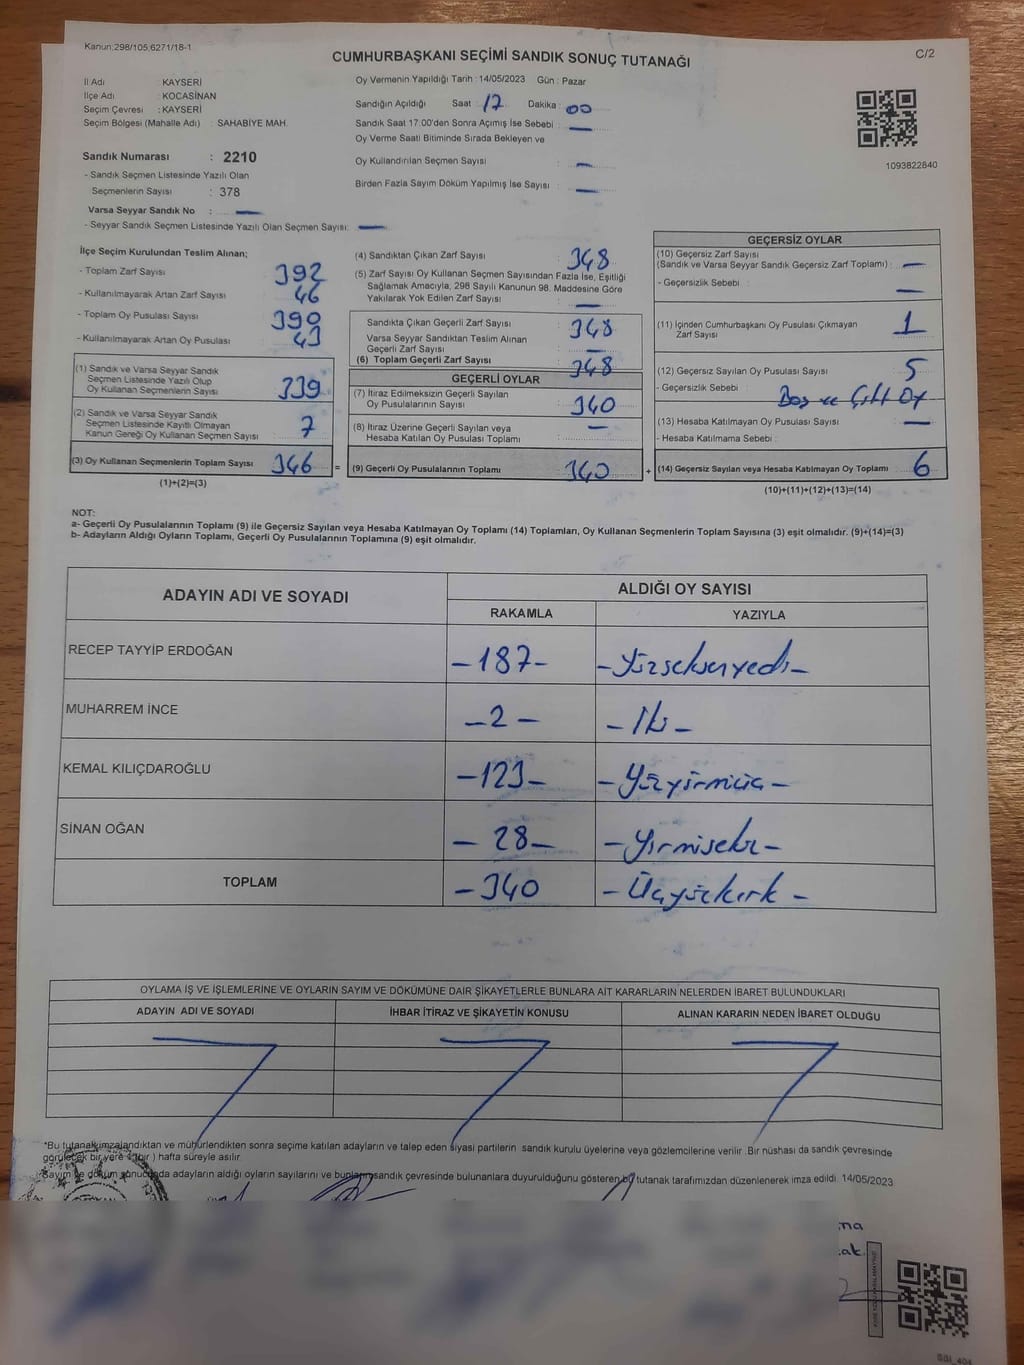 Kanun:298/105,6271/18-1
C/2
CUMHURBAŞKANI SEÇİMİ SANDIK SONUÇ TUTANAĞI
İl Adı : KAYSERİ
İlçe Adı : KOCASİNAN
Seçim Çevresi : KAYSERİ
Seçim Bölgesi (Mahalle Adı) : SAHABİYE MAH.
Sandık Numarası : 2210
- Sandık Seçmen Listesinde Yazılı Olan
Seçmenlerin Sayısı : 378
Varsa Seyyar Sandık No : —
- Seyyar Sandık Seçmen Listesinde Yazılı Olan Seçmen Sayısı: —
Oy Vermenin Yapıldığı Tarih : 14/05/2023 Gün : Pazar
Sandığın Açıldığı Saat : 17 Dakika : 00
Sandık Saat 17:00'den Sonra Açımış İse Sebebi : —
Oy Verme Saati Bitiminde Sırada Bekleyen ve
Oy Kullandırılan Seçmen Sayısı : —
Birden Fazla Sayım Döküm Yapılmış İse Sayısı : —
1093822840
İlçe Seçim Kurulundan Teslim Alınan;
- Toplam Zarf Sayısı : 392
- Kullanılmayarak Artan Zarf Sayısı : 46
- Toplam Oy Pusulası Sayısı : 390
- Kullanılmayarak Artan Oy Pusulası : 43
(1) Sandık ve Varsa Seyyar Sandık
Seçmen Listesinde Yazılı Olup
Oy Kullanan Seçmenlerin Sayısı : 339
(2) Sandık ve Varsa Seyyar Sandık
Seçmen Listesinde Kayıtlı Olmayan
Kanun Gereği Oy Kullanan Seçmen Sayısı : 7
(3) Oy Kullanan Seçmenlerin Toplam Sayısı : 346 =
(1)+(2)=(3)
(4) Sandıktan Çıkan Zarf Sayısı : 348
(5) Zarf Sayısı Oy Kullanan Seçmen Sayısından Fazla İse, Eşitliği
Sağlamak Amacıyla, 298 Sayılı Kanunun 98. Maddesine Göre
Yakılarak Yok Edilen Zarf Sayısı : —
Sandıkta Çıkan Geçerli Zarf Sayısı : 348
Varsa Seyyar Sandıktan Teslim Alınan
Geçerli Zarf Sayısı : —
(6) Toplam Geçerli Zarf Sayısı : 348
GEÇERLİ OYLAR
(7) İtiraz Edilmeksizin Geçerli Sayılan
Oy Pusulalarının Sayısı : 340
(8) İtiraz Üzerine Geçerli Sayılan veya
Hesaba Katılan Oy Pusulası Toplamı : —
(9) Geçerli Oy Pusulalarının Toplamı : 340 +
GEÇERSİZ OYLAR
(10) Geçersiz Zarf Sayısı
(Sandık ve Varsa Seyyar Sandık Geçersiz Zarf Toplamı) : —
- Geçersizlik Sebebi : —
(11) İçinden Cumhurbaşkanı Oy Pusulası Çıkmayan
Zarf Sayısı : 1
(12) Geçersiz Sayılan Oy Pusulası Sayısı : 5
- Geçersizlik Sebebi : Boş ve Çift Oy
(13) Hesaba Katılmayan Oy Pusulası Sayısı : —
- Hesaba Katılmama Sebebi :
(14) Geçersiz Sayılan veya Hesaba Katılmayan Oy Toplamı : 6
(10)+(11)+(12)+(13)=(14)
NOT:
a- Geçerli Oy Pusulalarının Toplamı (9) ile Geçersiz Sayılan veya Hesaba Katılmayan Oy Toplamı (14) Toplamları, Oy Kullanan Seçmenlerin Toplam Sayısına (3) eşit olmalıdır. (9)+(14)=(3)
b- Adayların Aldığı Oyların Toplamı, Geçerli Oy Pusulalarının Toplamına (9) eşit olmalıdır.
ADAYIN ADI VE SOYADI
ALDIĞI OY SAYISI
RAKAMLA YAZIYLA
RECEP TAYYİP ERDOĞAN -187- -Yüzseksenyedi-
MUHARREM İNCE -2- -İki-
KEMAL KILIÇDAROĞLU -123- -Yüzyirmiüç-
SİNAN OĞAN -28- -Yirmisekiz-
TOPLAM -340 -Üçyüzkırk-
OYLAMA İŞ VE İŞLEMLERİNE VE OYLARIN SAYIM VE DÖKÜMÜNE DAİR ŞİKAYETLERLE BUNLARA AİT KARARLARIN NELERDEN İBARET BULUNDUKLARI
ADAYIN ADI VE SOYADI İHBAR İTİRAZ VE ŞİKAYETİN KONUSU ALINAN KARARIN NEDEN İBARET OLDUĞU
*Bu tutanak imzalandıktan ve mühürlendikten sonra seçime katılan adayların ve talep eden siyasi partilerin sandık kurulu üyelerine veya gözlemcilerine verilir .Bir nüshası da sandık çevresinde
görülecek bir yere 1(bir ) hafta süreyle asılır.
*Sayım ve döküm sonucunda adayların aldığı oyların sayılarını ve bunların sandık çevresinde bulunanlara duyurulduğunu gösteren bu tutanak tarafımızdan düzenlenerek imza edildi. 14/05/2023